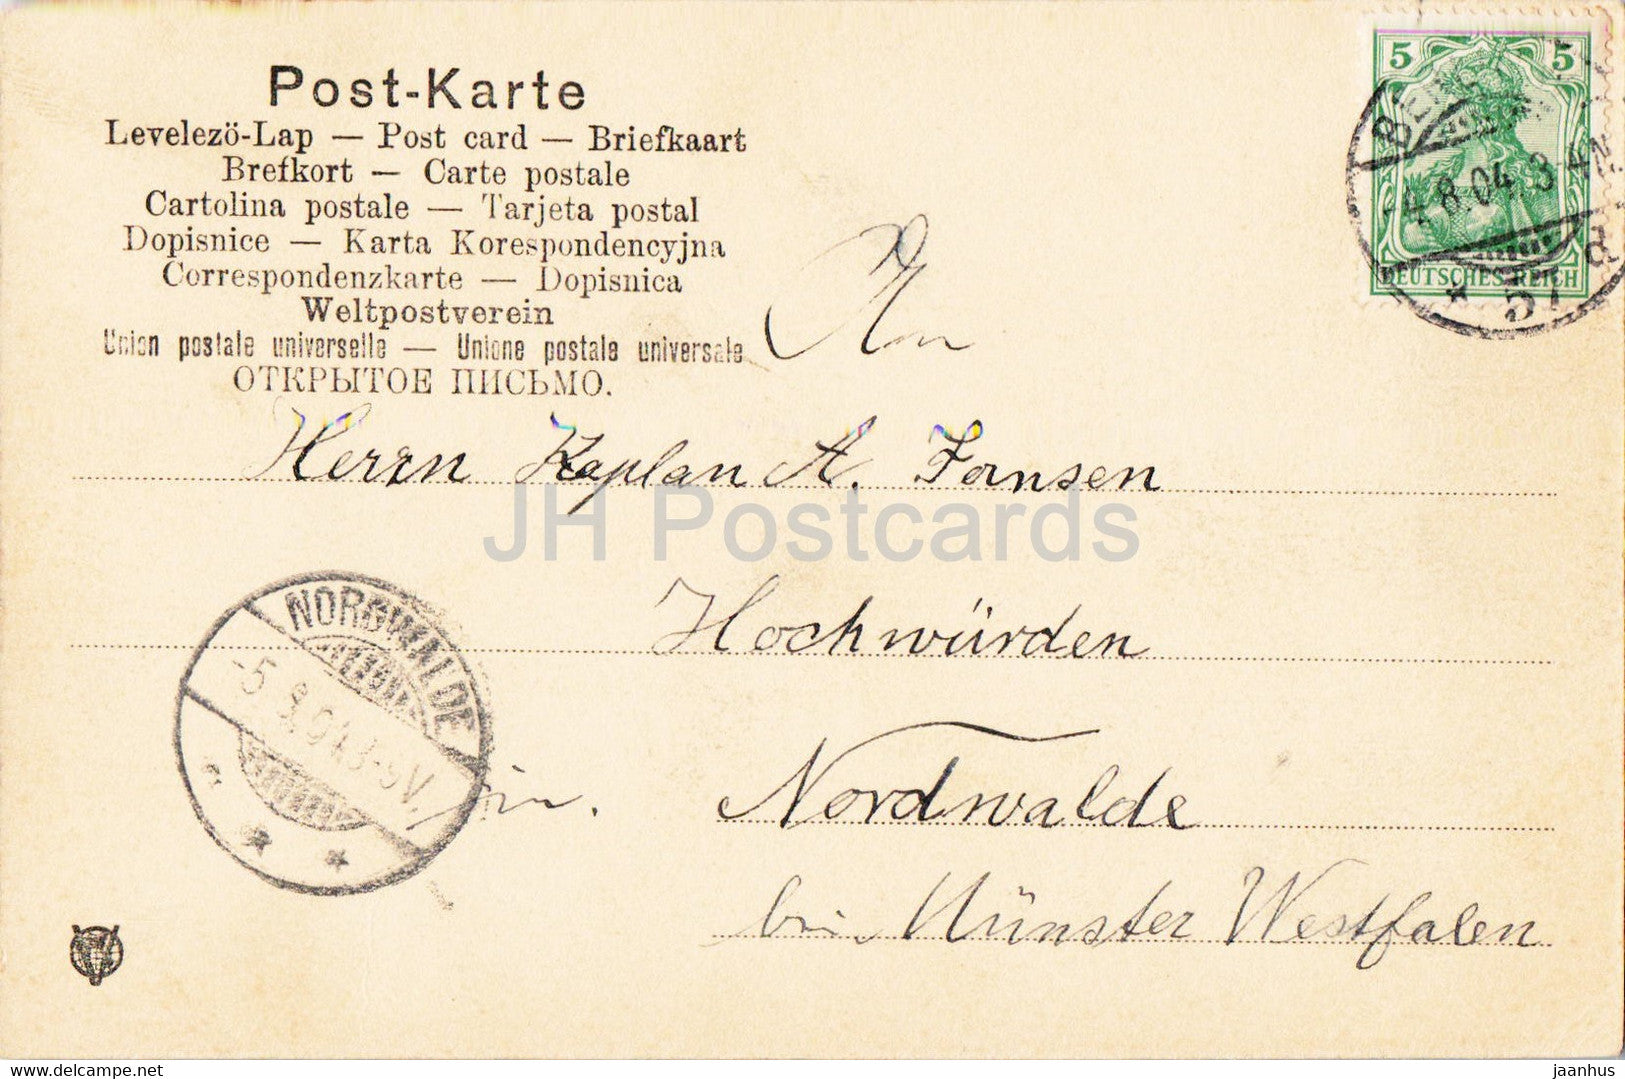 Post-Karte
Levelezö-Lap — Post card — Briefkaart
Brefkort — Carte postale
Cartolina postale — Tarjeta postal
Dopisnice — Karta Korespondencyjna
Correspondenzkarte — Dopisnica
Weltpostverein
Union postale universelle — Unione postale universale
ОТКРЫТОЕ ПИСЬМО.
5 5
DEUTSCHES REICH
4.8.04. 3-4N
* 57
An
Herrn Kaplan A. Jansen
JH Postcards
Hochwürden
NORDWALDE
-5.8.04.8-9V.
in.
Nordwalde
bei Münster Westfalen
jaanhus
delcampe.net